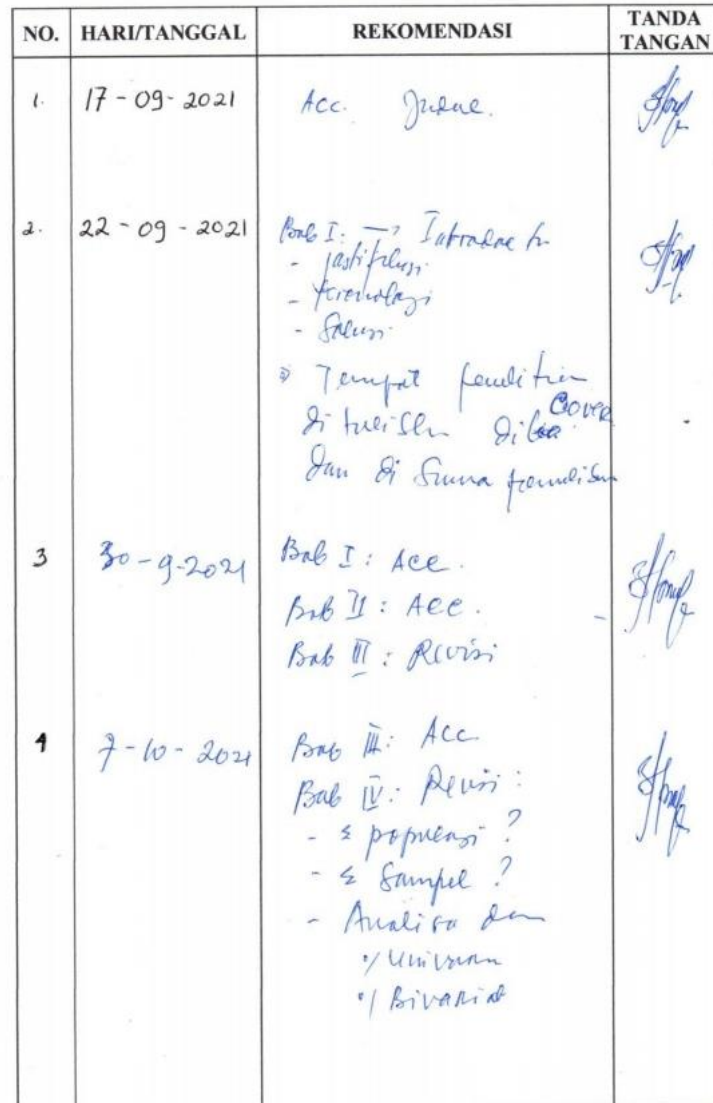 NO. HARI/TANGGAL REKOMENDASI TANDA TANGAN
1. 17-09-2021 Acc. Judul.
2. 22-09-2021 Bab I: →
- justifikasi
- kronologi
- Solusi
Tempat penelitian
dituliskan di Cover
dan di penulisan
3 30-9-2021 Bab I: Acc.
Bab II: Acc.
Bab III: Revisi
4 7-10-2021 Bab III: Acc
Bab IV: Revisi:
- Σ populasi?
- Σ Sampel?
- Analisa
Bivariat